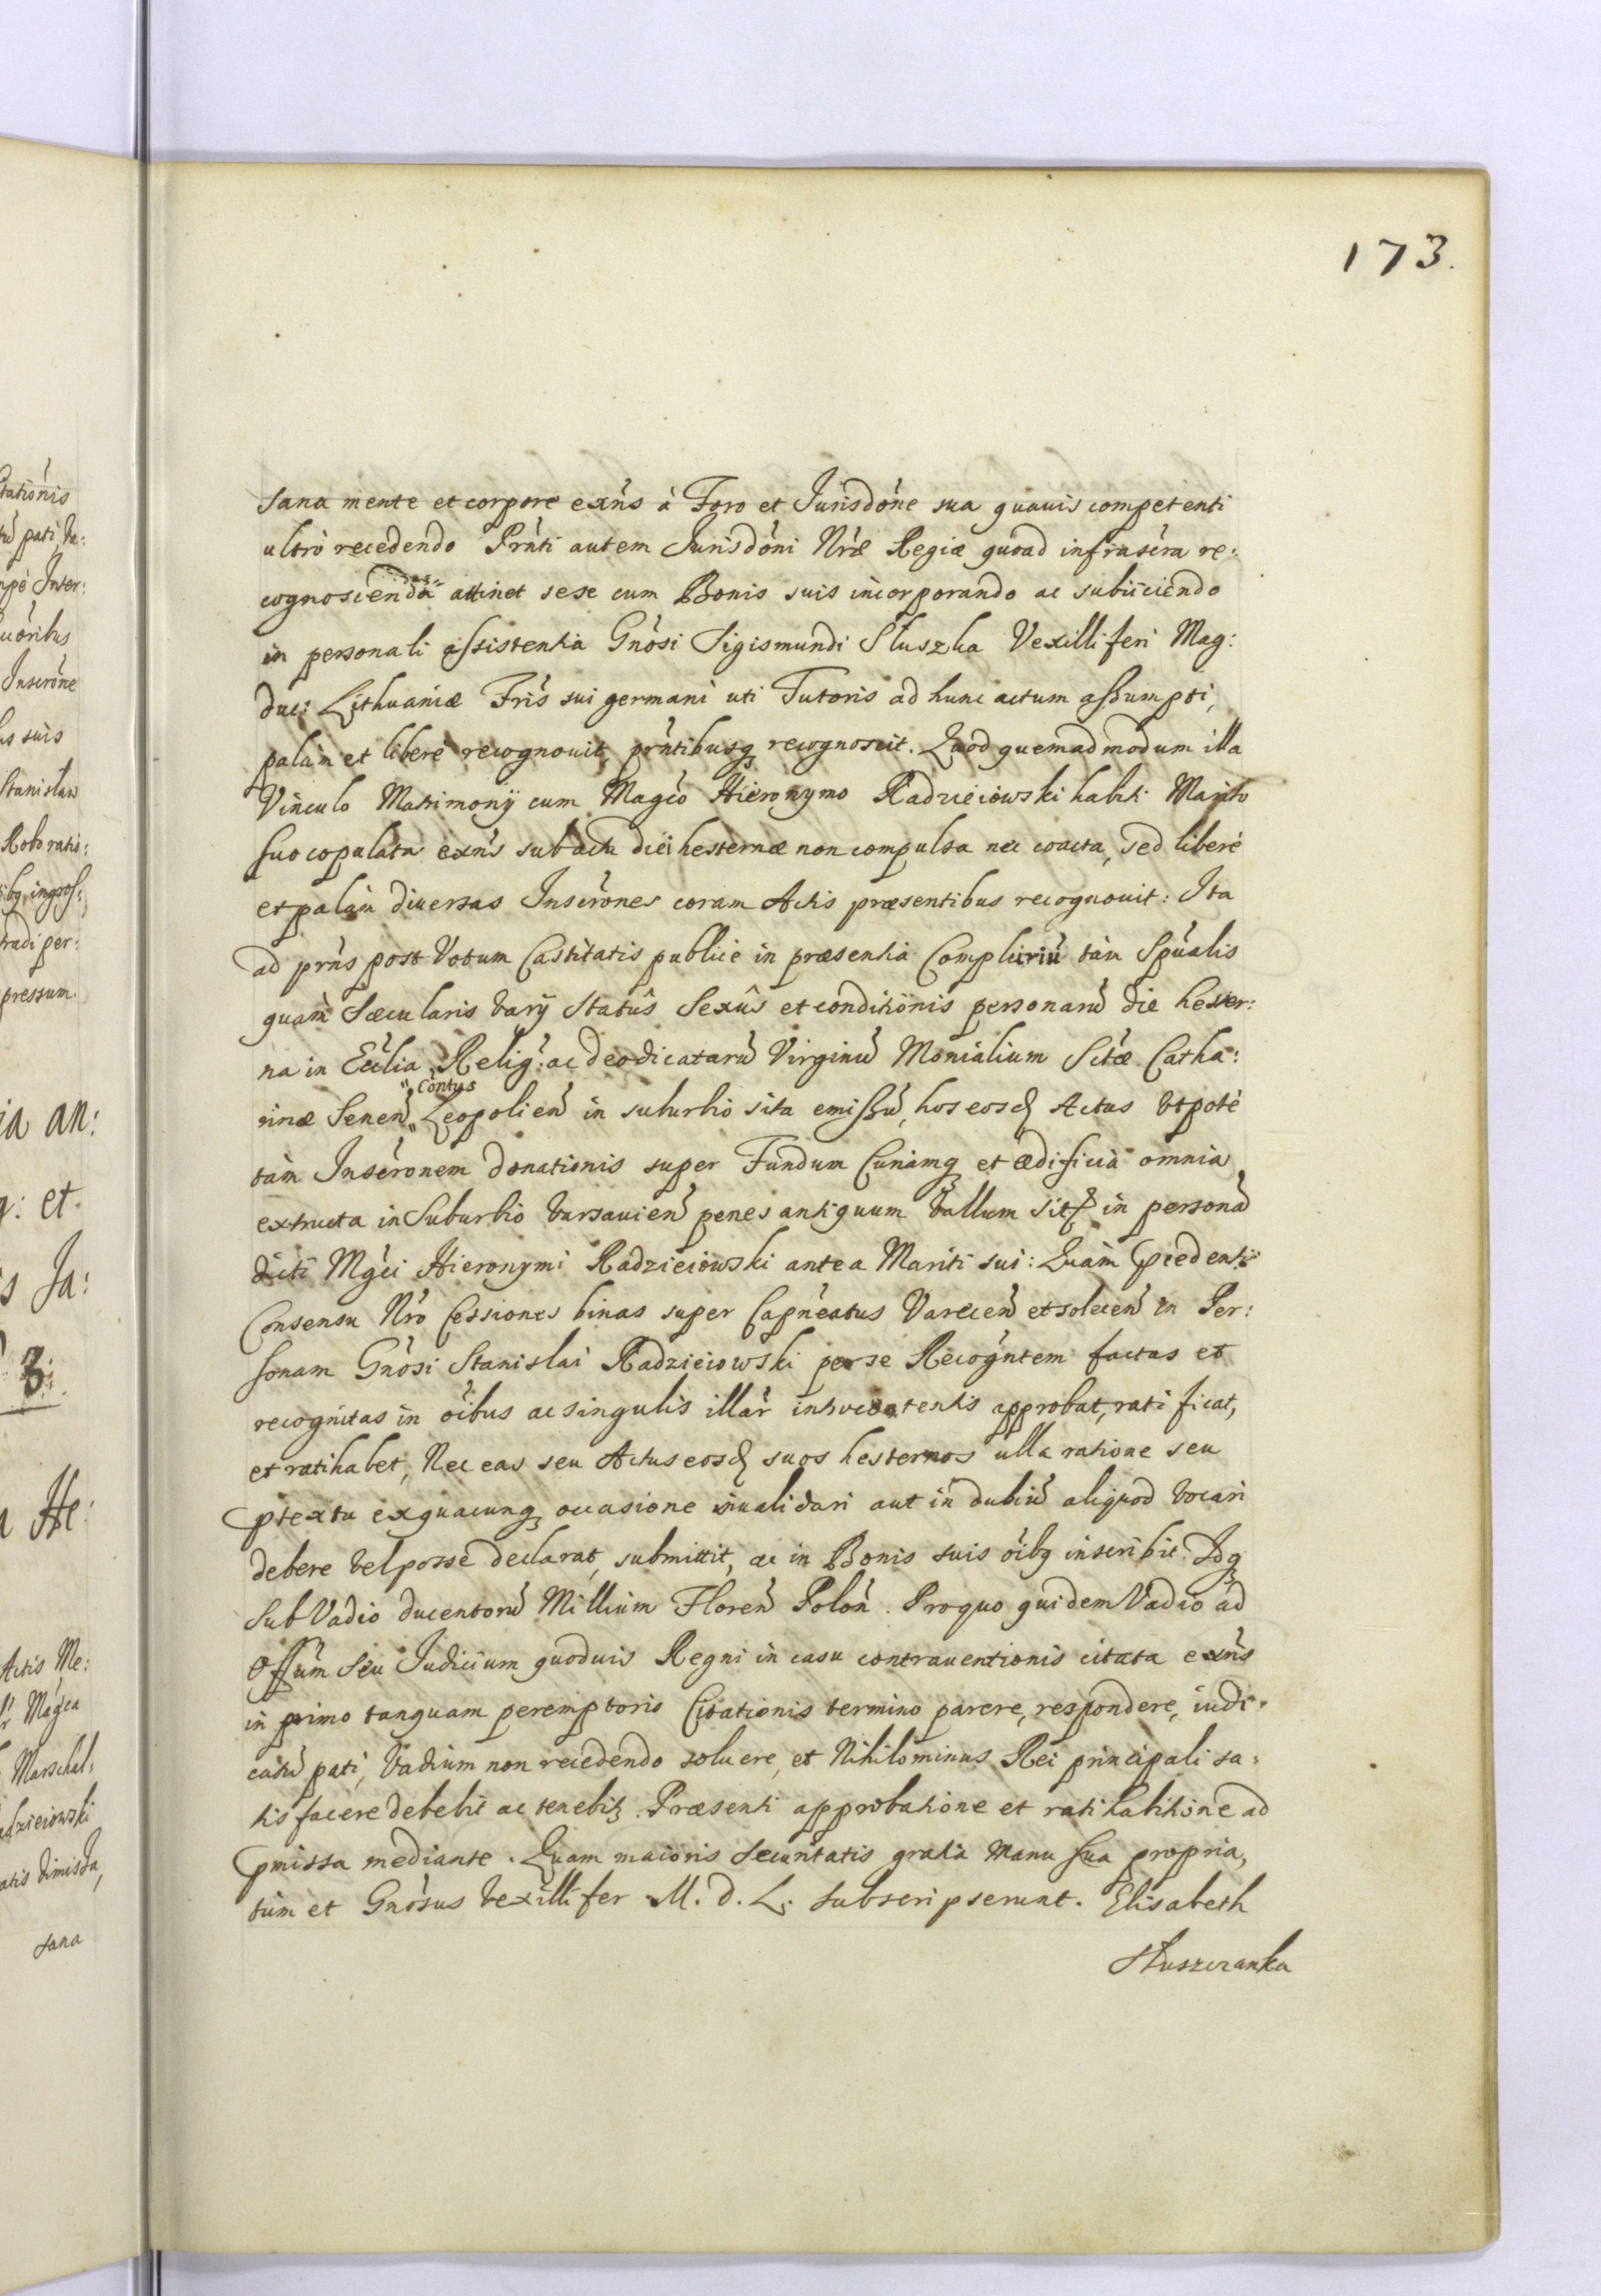 173.
sana mente et corpore exn̄s à Foro et Jurisdóne sua quauis competenti
ultrò recedendo Prńti autem Jurisdóni Nrǽ Regiæ quoad infrascŕa re:
cognoscenda attinet sese cum Bonis suis incorporando ac subiiciendo
in personali assistentia Gnósi Sigismundi Słuszka Vexilliferi Mag:
duc: Lithuaniæ Frís sui germani uti Tutoris ad hunc actum assumpti,
palàm et liberè recognouit, prńtibusq recognoscit. Quod quemadmodum illa
Vinculo Matrimonÿ cum Magćo Hieronymo Radzieiowski habiti Marito
suo copulata exńs sub actu diei hesternæ non compulsa nec coacta, sed liberè
et palàm diuersas Inscrónes coram Actis præsentibus recognouit: Ita
ad prńs post Votum Castitatis publice in præsentia Compluriū tàm Spúalis
quàm Sæcularis varÿ Statûs Sexûs et conditionis personarū die hester:
na in Ecćlia Relig: ac deodicatarū Virginū Monialium Sctǽ Catha:
rinæ Senen̄ „Cóntus Leopolien̄ in suburbio sita emissū, hos eosd Actus vtpotè
tàm Inscrónem donationis super Fundum Curiamq et ædificia omnia
extructa in Suburbio varsauien̄ penes antiquum vallum sit in personā
dicti Mgći Hieronymi Radzieiowski antea Mariti sui: Quàm Pcedenti
Consensu Nró Cessiones binas super Capńeatus Varecen̄ et solecen̄ in Per:
sonam Gnósi Stanislai Radzieiowski per se Recogńtem factas et
recognitas in óibus ac singulis illar̄ introcontentis approbat, ratificat,
et ratihabet, Nec eas seu Actus eosd suos hesternos ulla ratione seu
ptextu exquacunq occasione inualidari aut in dubiū aliquod vocari
debere vel posse declarat, submittit, ac in Bonis suis óibq inscribit. Idq
sub Vadio ducentorū Millium Floren̄ Polon̄. Pro quo quidem Vadio ad
Offum seu Judicium quoduis Regni in casu contrauentionis citata exńs
in primo tanquam peremptorio Citationis termino parere, respondere, iudi:
catū pati, Vadium non recedendo soluere, et Nihilominus Rei principali sa:
tisfacere debebit ac tenebit. Præsenti approbatione et ratihabitione ad
pmissa mediante. Quam maioris securitatis gratia Manu sua propria,
tùm et Gnósus vexillifer M. d. L. subscripserunt. Elisabeth
Słuszczanka